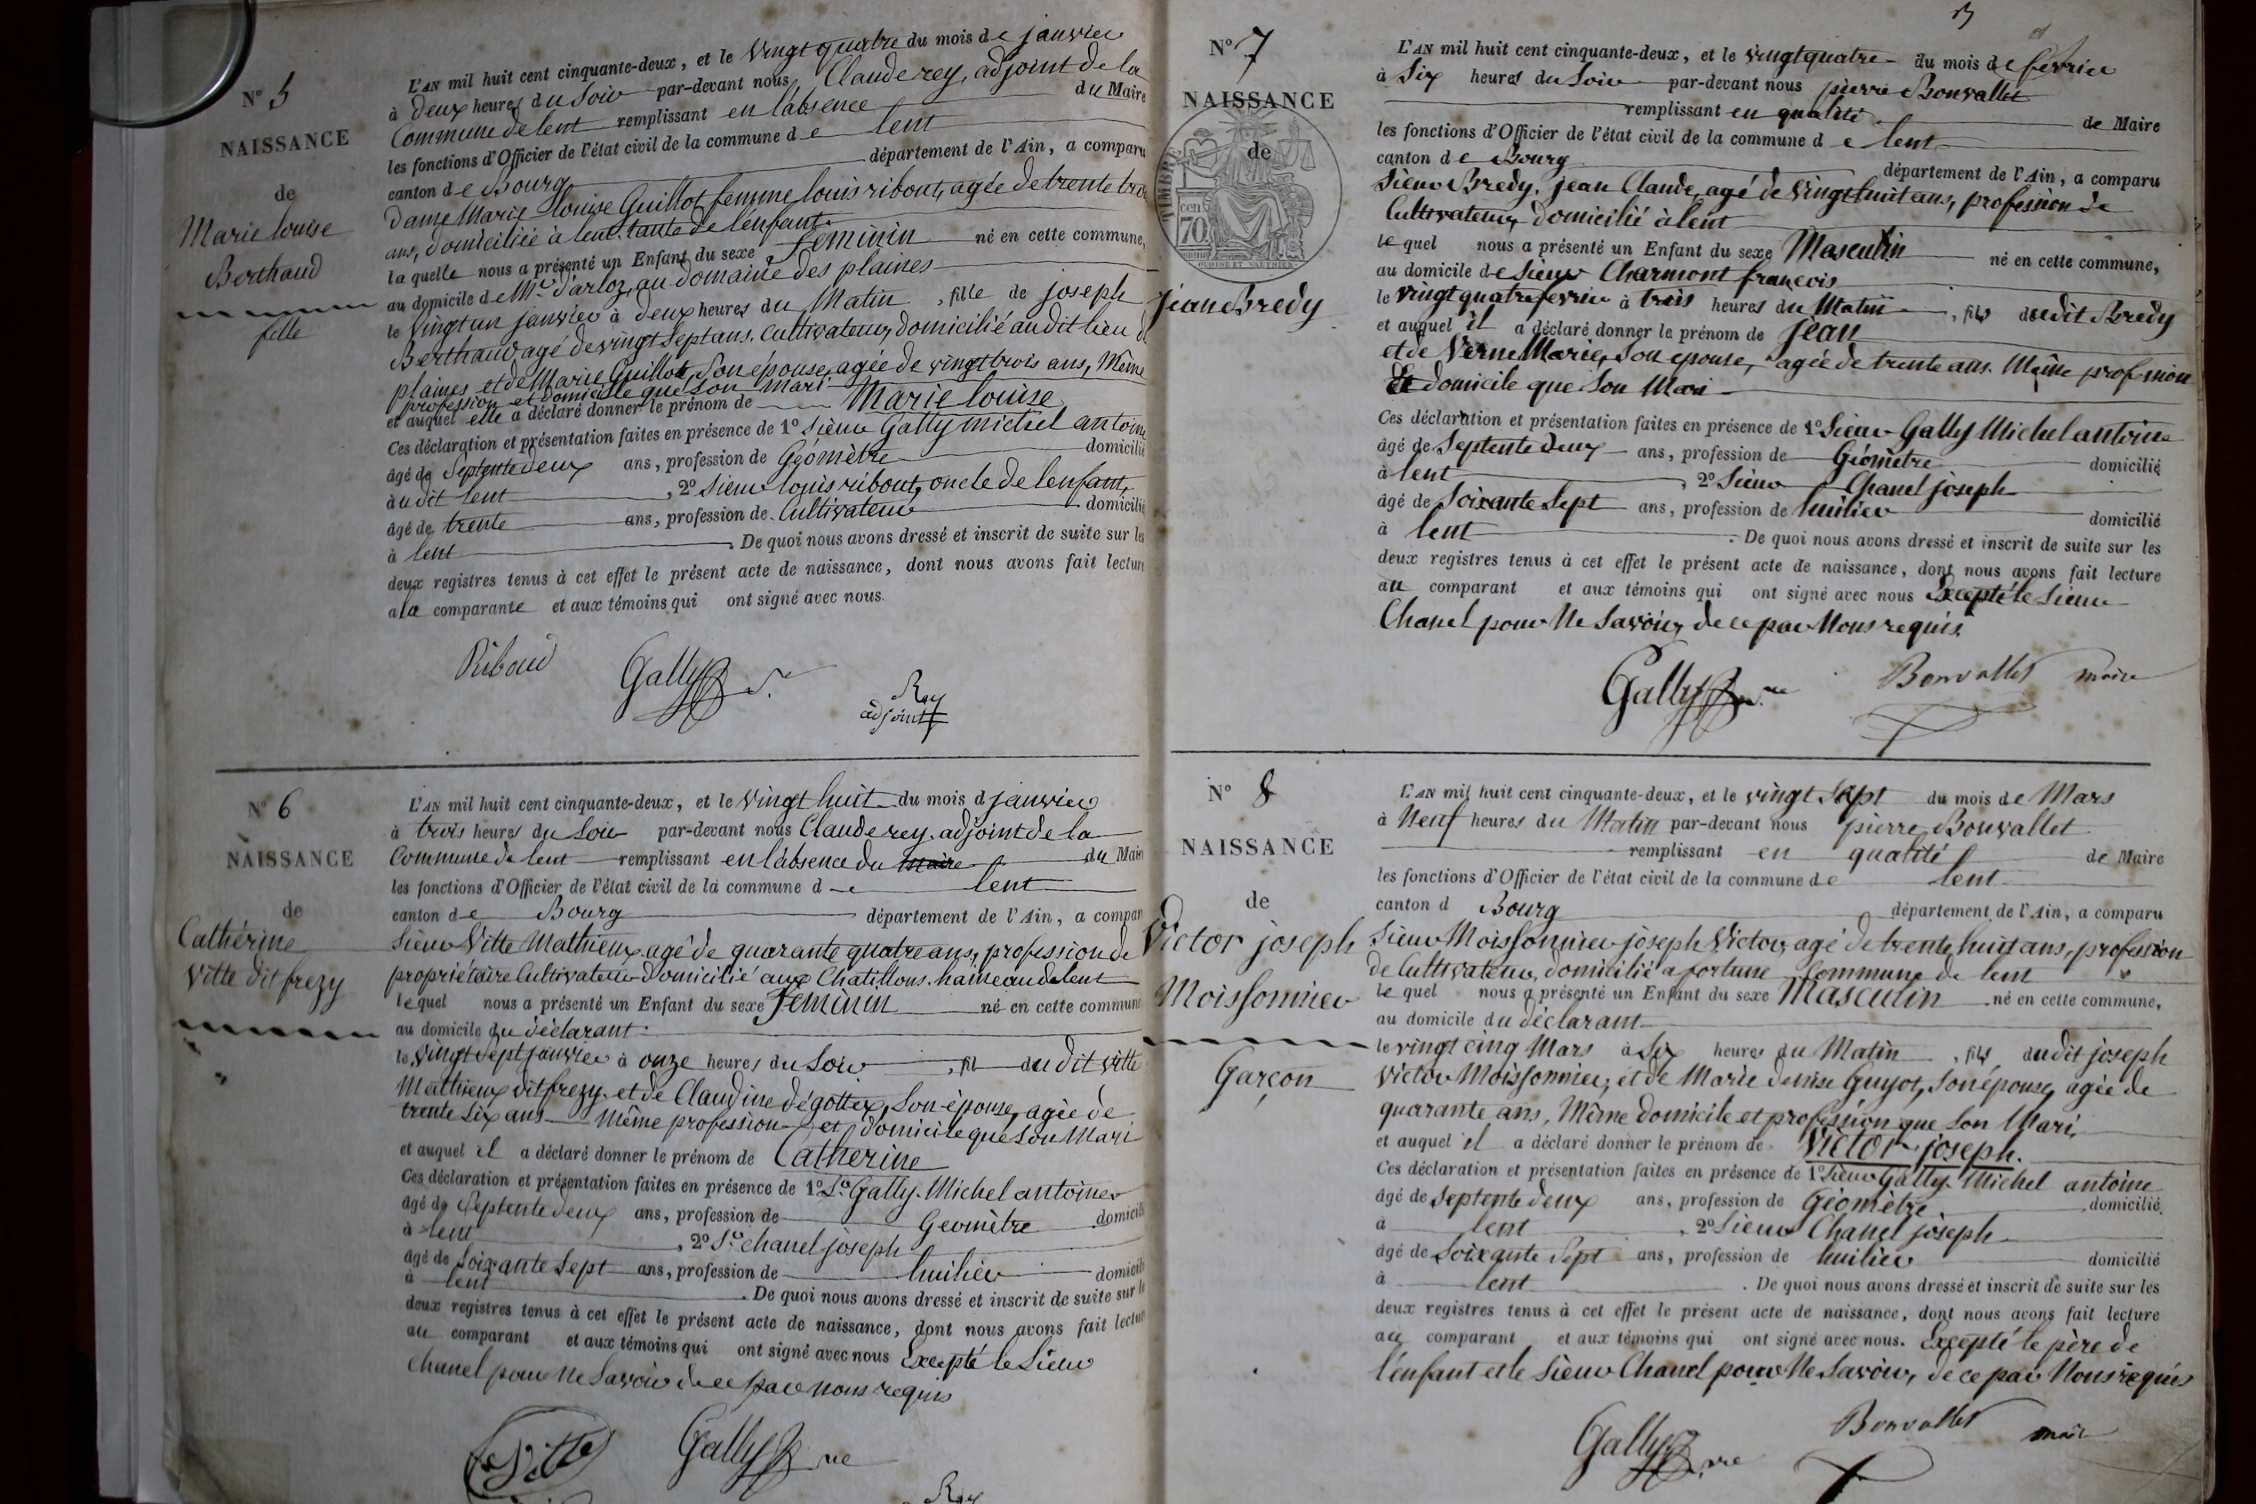 N° 5
NAISSANCE
de
Marie louise
Berthaud
fille
L'AN mil huit cent cinquante-deux, et le Vingt quatre du mois de janvier
à deux heures du Soir par-devant nous Claude rey, adjoint de la
Commune de lent remplissant en l'absence du Maire
les fonctions d'Officier de l'état civil de la commune de lent
canton de Bourg département de l'Ain, a comparu
dame Marie louise Guillot femme louis ribout, agée de trente trois
ans, domiciliée à lent. tante de l'enfant
la quelle nous a présenté un Enfant du sexe Féminin né en cette commune,
au domicile de Mr. Darloz, au domaine des plaines
le Vingt un janvier à deux heures du Matin, fille de joseph
Berthaud agé de vingt Sept ans. Cultivateur, domicilié au dit lieu de
plaines et de Marie Guillot, Son épouse, agée de vingt trois ans, Même
profession et domicile que Son Mari
et auquel elle a déclaré donner le prénom de Marie louise
Ces déclaration et présentation faites en présence de 1° Sieur Gally Michel antoine
âgé de Septente deux ans, profession de Géomètre domicilié
au dit lent, 2° Sieur louis ribout, oncle de l'enfant,
âgé de trente ans, profession de Cultivateur domicilié
à lent. De quoi nous avons dressé et inscrit de suite sur les
deux registres tenus à cet effet le présent acte de naissance, dont nous avons fait lecture
a la comparante et aux témoins qui ont signé avec nous.
Riboud Gally
Rey
adjoint
N° 6
NAISSANCE
de
Cathérine
Vitte dit frezy
L'AN mil huit cent cinquante-deux, et le Vingt huit du mois d janvier
à trois heures du Soir par-devant nous Claude rey. adjoint de la
Commune de lent remplissant en l'absence du maire du Maire
les fonctions d'Officier de l'état civil de la commune de lent
canton de Bourg département de l'Ain, a compar
Sieur Vitte Mathieux agé de quarante quatre ans, profession de
propriétaire Cultivateur domicilié aux Chatillons. haineau de lent
le quel nous a présenté un Enfant du sexe Féminin né en cette commune
au domicile du déclarant.
le Vingt Sept janvier à onze heures du Soir, fil du dit Vitte
Mathieux dit frezy. et de Claudine dégottex, Son épouse, agée de
trente Six ans Même profession et domicile que Son Mari
et auquel il a déclaré donner le prénom de Catherine
Ces déclaration et présentation faites en présence de 1° Sr Gally. Michel antoine
âgé de Septente deux ans, profession de Géomètre domicilié
à lent, 2° Sr chanel joseph
âgé de Soixante Sept ans, profession de huilier domicilié
à lent. De quoi nous avons dressé et inscrit de suite sur le
deux registres tenus à cet effet le présent acte de naissance, dont nous avons fait lecture
au comparant et aux témoins qui ont signé avec nous Excepté le Sieur
Chanel pour Ne Savoir de ce par nous requis
Vitte Gally
Rey
N° 7
NAISSANCE
de
TIMBRE
70 cen
jean Bredy
L'AN mil huit cent cinquante-deux, et le vingt quatre du mois de fevrier
à Six heures du Soir par-devant nous pierre Bonvallet
remplissant en qualité de Maire
les fonctions d'Officier de l'état civil de la commune de lent
canton de Bourg département de l'Ain, a comparu
Sieur Bredy. jean Claude, agé de vingt huit ans, profession de
Cultivateur, domicilié à lent
le quel nous a présenté un Enfant du sexe Masculin né en cette commune,
au domicile de Sieur Charmont françois
le vingt quatre fevrier à trois heures du Matin, fils du dit Bredy
et auquel il a déclaré donner le prénom de jean
et de Verne Marie, Son epouse, agée de trente ans. Même profession
Et domicile que Son Mari
Ces déclaration et présentation faites en présence de 1° Sieur Gally Michel antoine
âgé de Septente deux ans, profession de Géomètre domicilié
à lent, 2° Sieur Chanel joseph
âgé de Soixante Sept ans, profession de huilier domicilié
à lent. De quoi nous avons dressé et inscrit de suite sur les
deux registres tenus à cet effet le présent acte de naissance, dont nous avons fait lecture
au comparant et aux témoins qui ont signé avec nous Excepté le Sieur
Chanel pour Ne Savoir, de ce par Nous requis.
Gally Bonvallet maire
N° 8
NAISSANCE
de
Victor joseph
Moissonnier
Garçon
L'AN mil huit cent cinquante-deux, et le vingt Sept du mois de Mars
à Neuf heures du Matin par-devant nous pierre Bonvallet
remplissant en qualité de Maire
les fonctions d'Officier de l'état civil de la commune de lent
canton d Bourg département de l'Ain, a comparu
Sieur Moissonnier joseph Victor, agé de trente huit ans, profession
de Cultivateur, domicilié a fortune Commune de lent
le quel nous a présenté un Enfant du sexe Masculin né en cette commune,
au domicile du déclarant
le vingt cinq Mars à Six heures du Matin, fils du dit joseph
Victor Moissonnier, et de Marie denise Guyot, Son épouse, agée de
quarante ans, Même domicile et profession que Son Mari,
et auquel il a déclaré donner le prénom de Victor joseph.
Ces déclaration et présentation faites en présence de 1° Sieur Gally Michel antoine
âgé de Septente deux ans, profession de Géomètre domicilié
à lent, 2° Sieur Chanel joseph
âgé de Soixante Sept ans, profession de huilier domicilié
à lent. De quoi nous avons dressé et inscrit de suite sur les
deux registres tenus à cet effet le présent acte de naissance, dont nous avons fait lecture
au comparant et aux témoins qui ont signé avec nous. Excepté le père de
l'enfant et le Sieur Chanel pour Ne Savoir, de ce par Nous requis
Gally Bonvallet maire